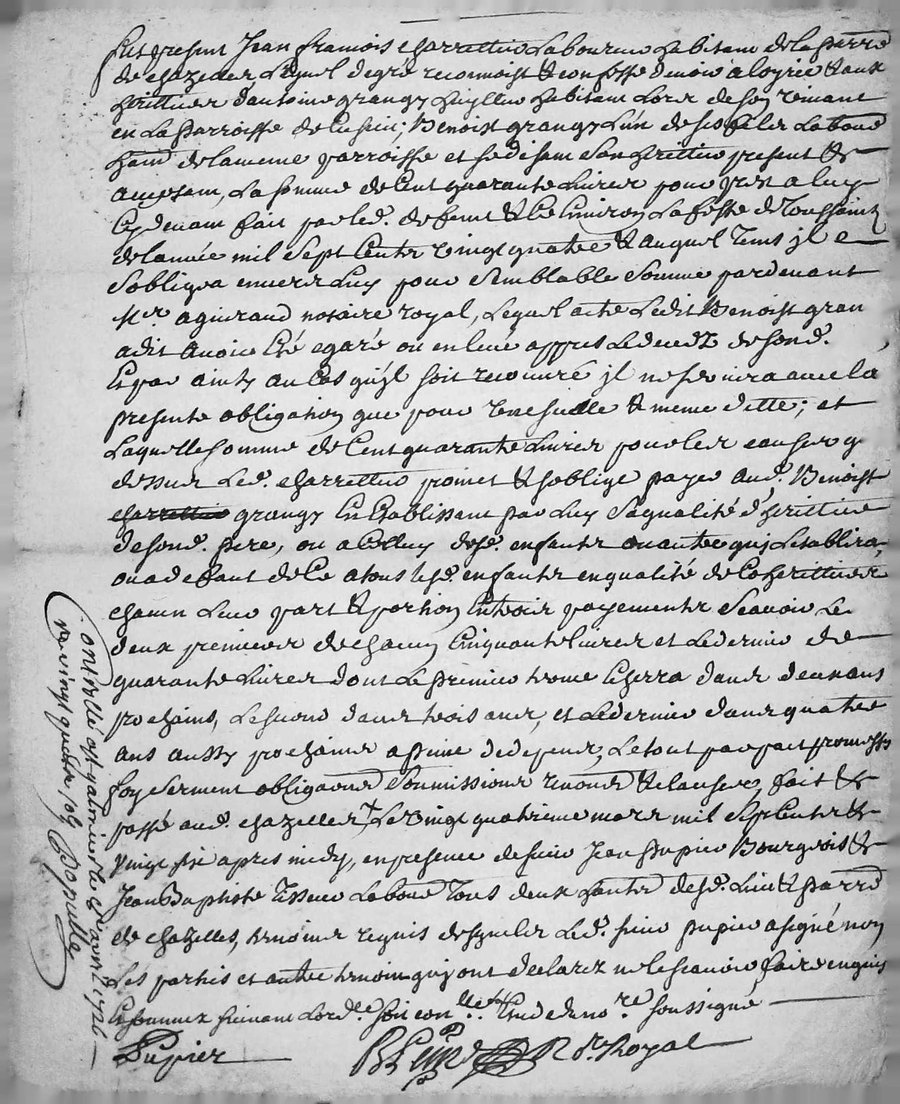 fut present Jean francois charrettier Laboureur habitant de la parr.
de chazelles Lequel de gré reconnoist & confesse devoir a loyrie & aux
herittier dantoine grangy habitant Lors de son vivant
en La parroisse de ; Benoist grangy Lun de ses fils Labour
hab. de la meme parroisse et se disant son herittier present &
acceptant, La somme de Cent quarante Livres pour prest a luy
Cy devant fait par led. deffunt & Ce Environ La feste de Toussaintz
de lannée mil Sept Centz vingt quatre & auquel tems jl
Sobligea envers Luy pour Semblable Somme pardevant
Mre aguiraud notaire royal, Lequel acte Ledit Benoist gran
a dit avoir Eté egaré ou enlevé appres Le decedz de sond.
Et par ainsy au Cas quyl soit recouvré jl ne servira avec la
presente obligation que pour une seulle & meme dette; et
Laquelle somme de Cent quarante Livres pour les causes q
dessus Led. charrettier promet & soblige payer aud. Benoist
grangy En Etablissant par Luy Sa qualité dherittier
de sond. pere, ou a Celluy desd. enfants ou autre quy Letablira,
ou a deffaut de Ce a tous lesd. enfants en qualité de Coherittiers
chacun Leur part & portion En trois payements Scavoir Le
deux premiers de chacun Cinquante livres et Le dernier de
quarante Livres dont Le premier terme Echerra dans deux ans
prochains, Le second dans trois ans, et Le dernier dans quatre
ans aussy prochains a peine de depens, Le tout par pact promesse
foy serment obligaons Soumissions renons & clauses, fait &
passé aud. chazelles, Le vingt quatrieme mars mil Sept Centz &
vingt six apres midy, en presence de sieur Jean pupier Bourgeois &
Jean Baptiste tisseur Labour. tous deux habitants desd. Lieu & parr.
de chazelles, temoins requis desquels Led. sieur pupier a signé non
Les parties et autre temoin quy ont declarez ne le scavoir faire enquis
Et sommez suivant Lord.ce soit con.lle Etude du no.re soussigné
Pupier
N.re Royal
Controllé a st galmier le 8 avril 1726
 vingt quatre sols Populle